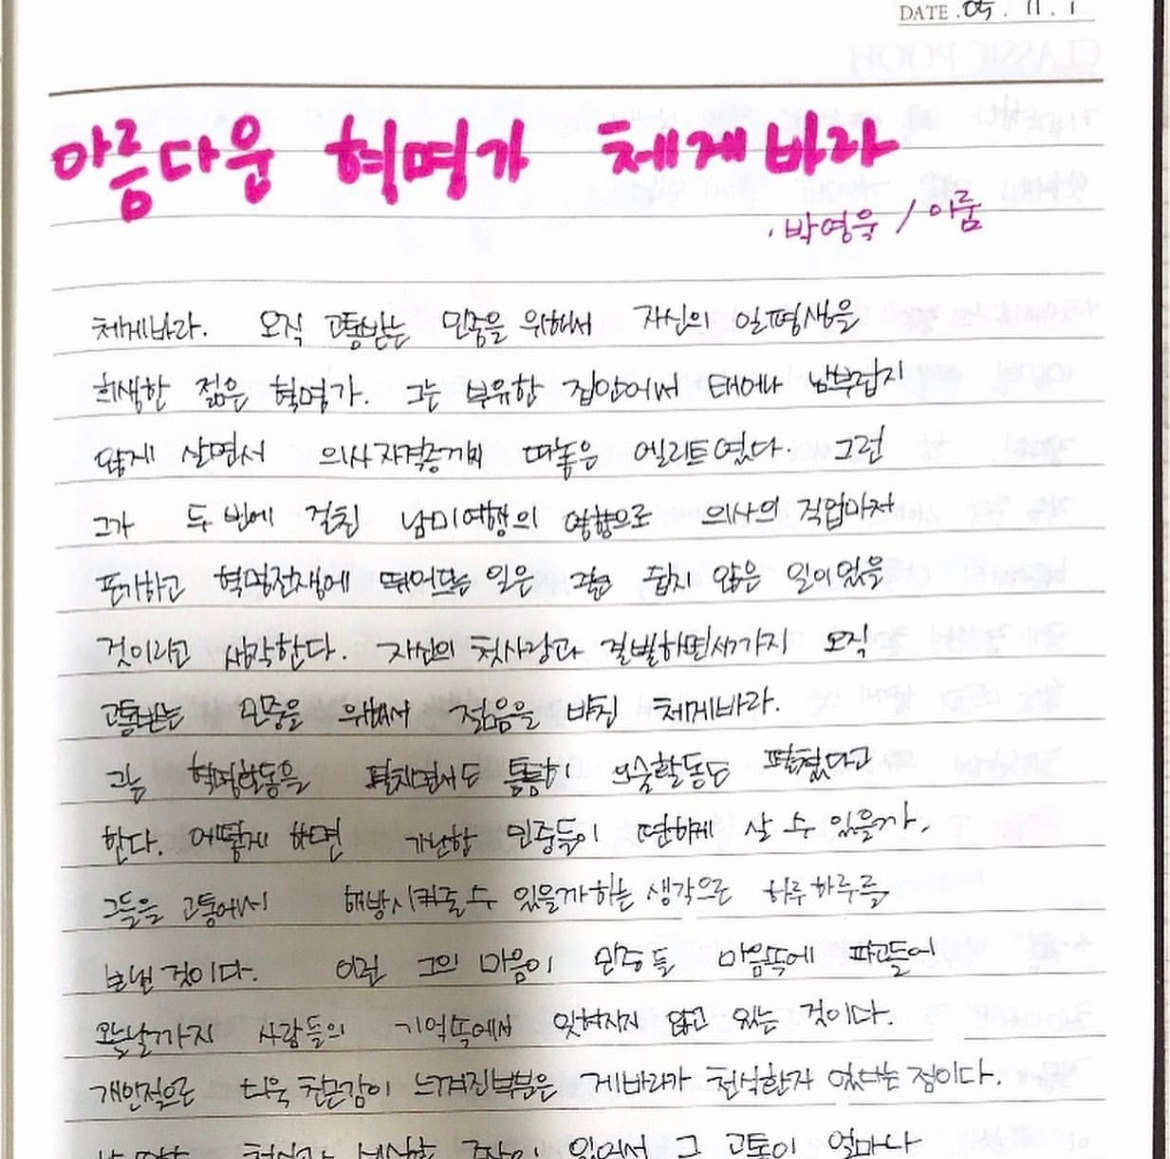 DATE . 05 . 11 . 1
아름다운 혁명가 체게바라
· 박영욱 / 이룸
체게바라. 오직 고통받는 민중을 위해서 자신의 일평생을
희생한 젊은 혁명가. 그는 부유한 집안에서 태어나 남부럽지
않게 살면서 의사자격증까지 따놓은 엘리트였다. 그런
그가 두 번에 걸친 남미여행의 영향으로 의사의 직업마저
포기하고 혁명전쟁에 뛰어드는 일은 결코 쉽지 않은 일이었을
것이라고 생각한다. 자신의 첫사랑과 결별하면서까지 오직
고통받는 민중을 위해서 젊음을 바친 체게바라.
그는 혁명활동을 펼치면서도 틈틈이 의술활동도 펼쳤다고
한다. 어떻게 하면 가난한 민중들이 편하게 살 수 있을까,
그들을 고통에서 해방시켜줄 수 있을까하는 생각으로 하루하루를
보낸 것이다. 이런 그의 마음이 민중들 마음속에 파고들어
오늘날까지 사람들의 기억속에서 잊혀지지 않고 있는 것이다.
개인적으로 더욱 친근감이 느껴진부분은 게바라가 천식환자 였다는 점이다.
천식과 있어서 그 고통이 얼마나